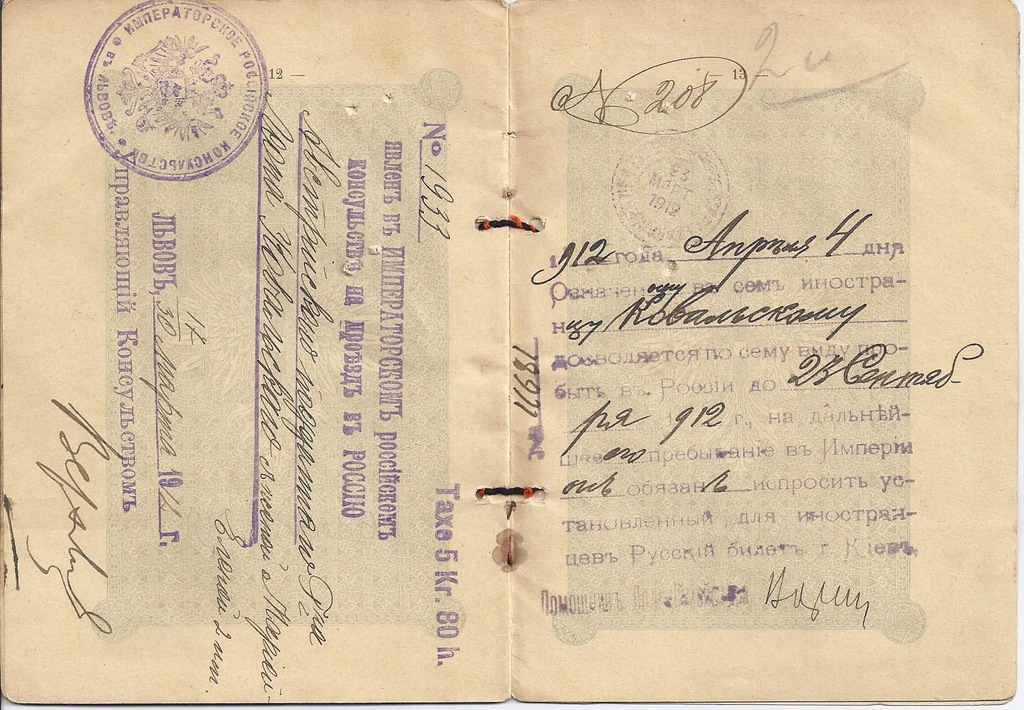 12 —
ИМПЕРАТОРСКОЕ РОССІЙСКОЕ КОНСУЛЬСТВО
ВЪ ЛЬВОВѢ.
№ 1933
ЯВЛЕНЪ ВЪ ИМПЕРАТОРСКОМЪ РОССІЙСКОМЪ
КОНСУЛЬСТВѢ НА ПРОѢЗДЪ ВЪ РОССІЮ
Австрійскаго подданнаго Г-на
Ковальскаго съ женой Маріей
Еленой 2
ЛЬВОВЪ, 17/30 Марта 1912 г.
Управляющій Консульствомъ
Taxe 5 Kr. 80 h.
— 13 —
№ 208
23
МАРТ
1912
1912 года Апрѣля 4 дня
Означенному въ семъ иностра-
нцу Ковальскому
дозволяется по сему виду про-
быть въ Россіи до 23 Сентяб-
ря 1912 г., на дальнѣй-
шее его пребываніе въ Имперіи
онъ обязанъ испросить ус-
тановленный для иностран-
цевъ Русскій билетъ г. Кіевъ
Помощникъ
18977